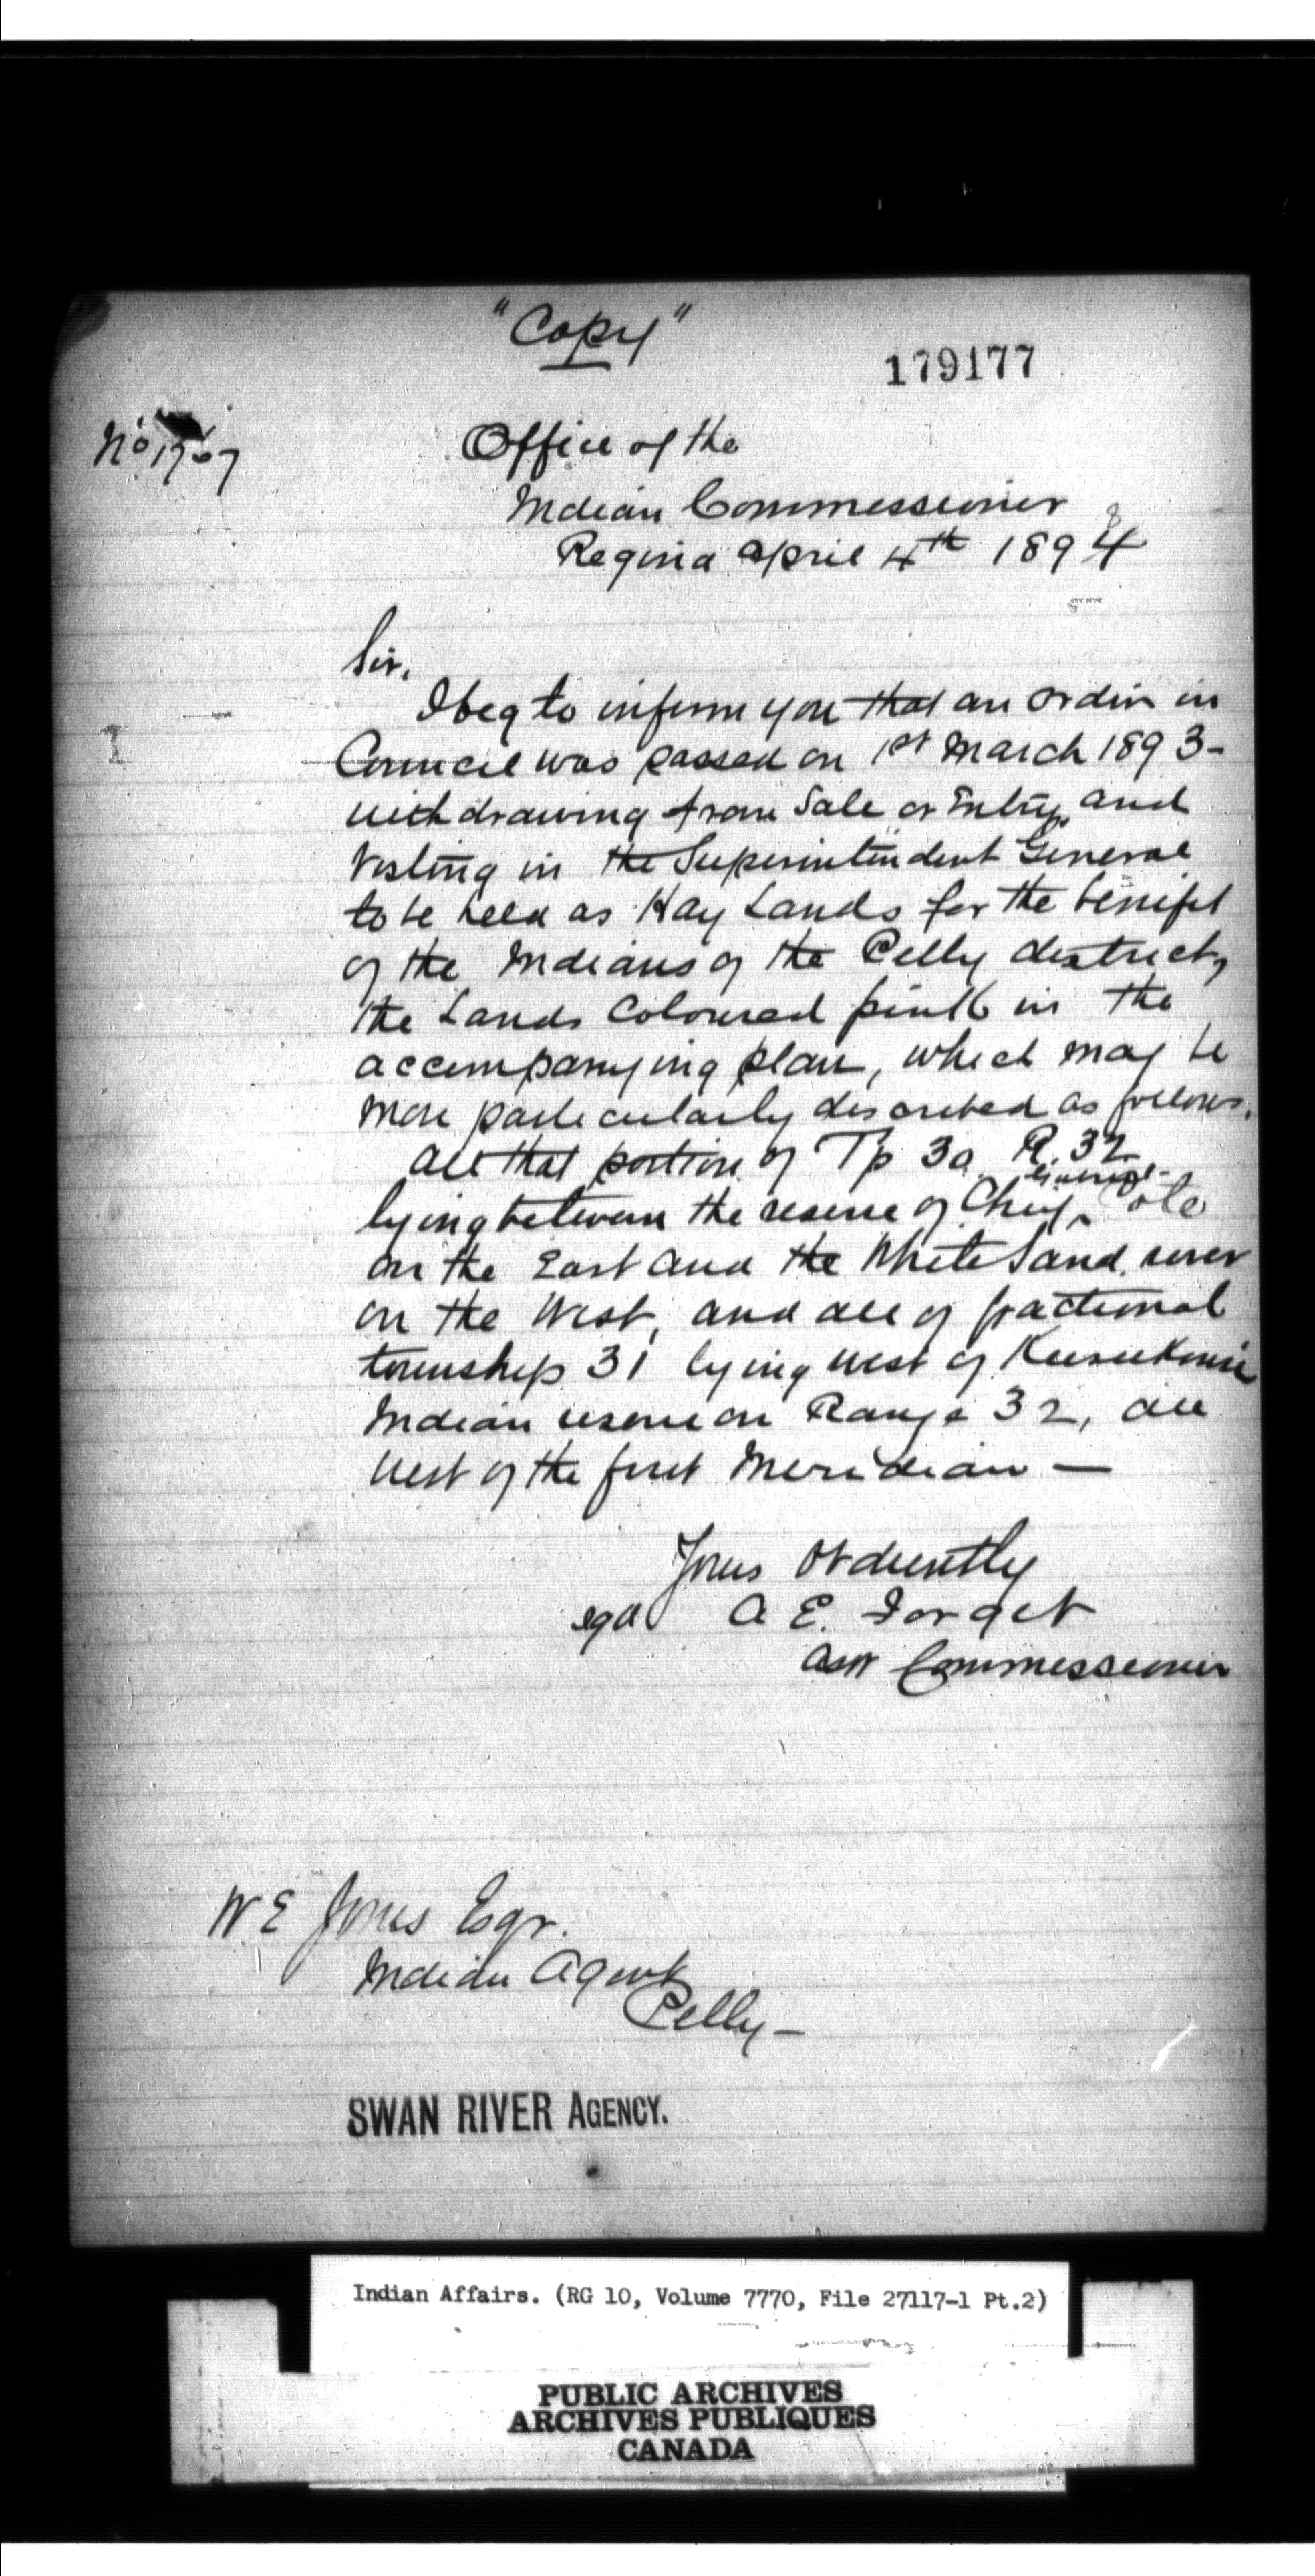 "Copy"
179177
No 1707
Office of the
Indian Commissioner
Regina April 4th 1894
Sir,
I beg to inform you that an order in
Council was passed on 1st March 1893-
withdrawing from Sale or Entry, and
Vesting in the Superintendent General
to be held as Hay Lands for the benifit
of the Indians of the Pelly district,
the Lands Coloured pink in the
accompanying plan, which may be
more particularly described as follows.
All that portion of Tp 30 R. 32
lying between the reserve of Chief Cote
on the East and the White Sand river
on the West, and all of fractional
township 31 lying west of Keesekouse
Indian reserve on Range 32, all
West of the first Meridian —
Yours Obdiently
sgd A E. Forget
Asst Commissioner
W E Jones Esqr.
Indian Agent
Pelly —
SWAN RIVER AGENCY.
Indian Affairs. (RG 10, Volume 7770, File 27117-1 Pt.2)
PUBLIC ARCHIVES
ARCHIVES PUBLIQUES
CANADA